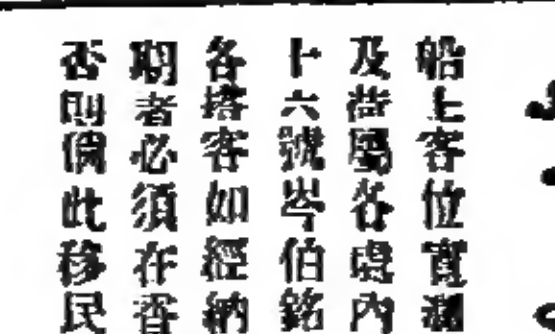 船上客位實
及尚屬各內
十六號岑伯銘
各搭客如經納
期者必須在香
否則倘此移民